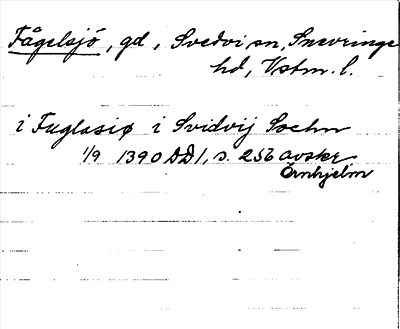 Fågelsjö, gd, Svedvi sn, Snevringe
hd, Vstm. l.
i Fuglasiø i Svidvij Sochn
1/9 1390 DD1, s. 256 avskr.
Örnhjelm